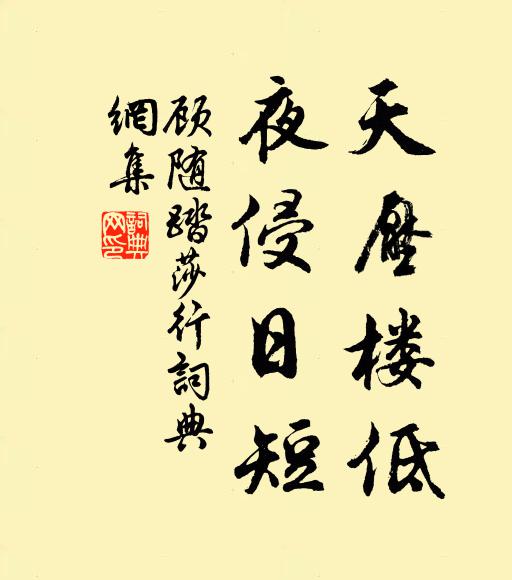 天压楼低
夜侵日短
顾随踏莎行詞典
網集
詞典
网印